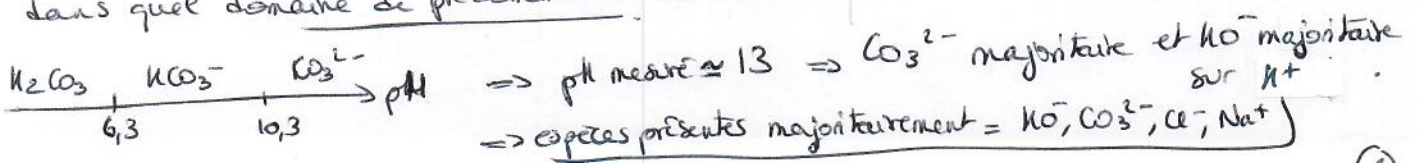 dans quel domaine de
H2CO3 HCO3⁻ CO3²⁻ pH => pH mesuré ≃ 13 => CO3²⁻ majoritaire et HO⁻ majoritaire
6,3 10,3 sur H+
=> espèces présentes majoritairement = HO⁻, CO3²⁻, Cl⁻, Na+